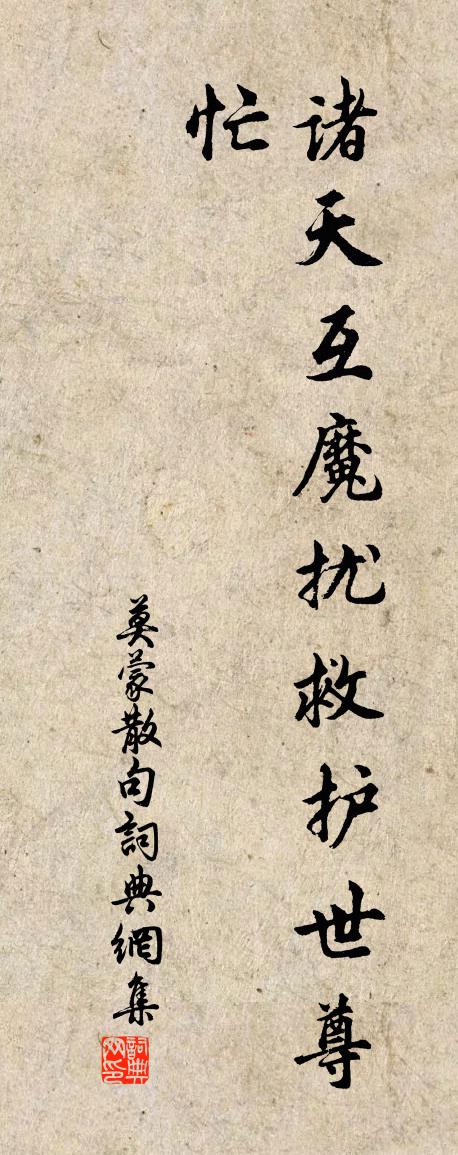 诸天互魔扰救护世尊
忙
莫蒙散句詞典網集
詞典網印